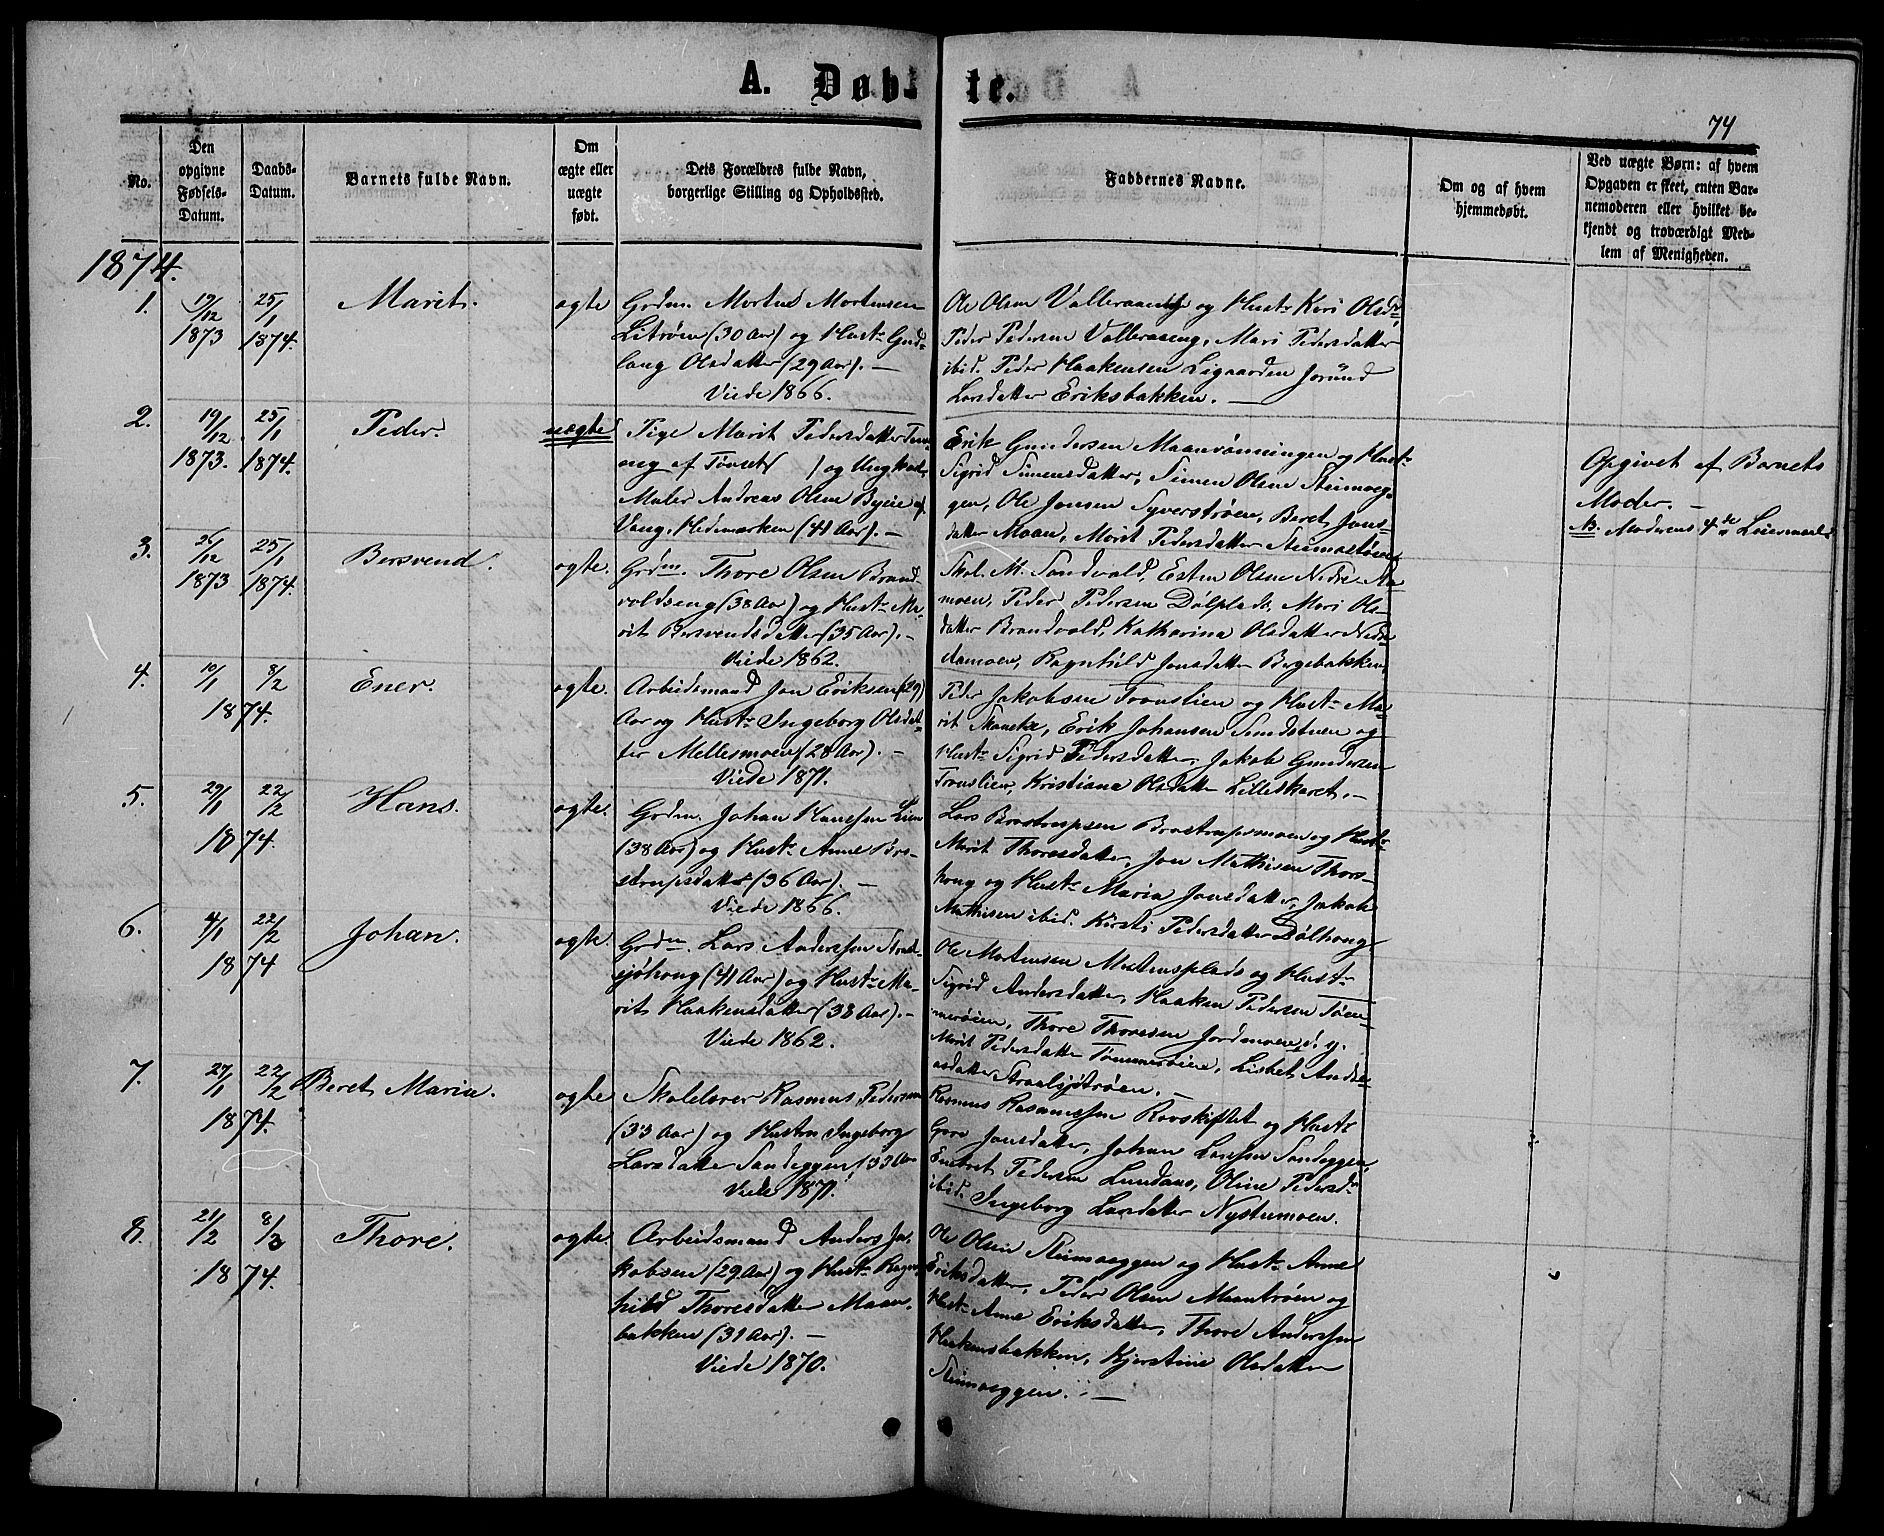 A. Døbte.
74
No.
Den
opgivne
Fødsels-
Datum.
Daabs-
Datum.
Barnets fulde Navn.
Om
ægte eller
uægte
født.
Dets Forældres fulde Navn,
borgerlige Stilling og Opholdssted.
Faddernes Navne.
Om og af hvem
hjemmedøbt.
Ved uægte Børn: af hvem
Opgaven er skeet, enten Bar-
nemoderen eller hvilket be-
kjendt og troværdigt Med-
lem af Menigheden.
1874.
1.
19/12
1873
25/1
1874.
Marit.
ægte
Grdm. Morten Mortensen
(30 Aar) og Hust. Gud-
laug Olsdatter (29 Aar). —
Viede 1866.
Ole Olsen og Hust. Kari Olsd.
Peder Pedersen Mari Pedersdatter
ibid. Peder Haakensen Joründ
Larsdatter Eriksbakken. —
2.
19/12
1873.
25/1
1874.
Peder.
uægte
Pige Marit Pedersdatter
af Tönset ) og Ungkarl,
Maler Andreas Olsen af
Vang, Hedemarken (41 Aar). —
Erik Gundersen Maanrönningen og Hust.
Sigrid Simensdatter, Simen Olsen Steimoeg-
gen, Ole Jonsen Syverströen, Beret Jons-
datter Moan, Marit Pedersdatter
Opgivet af Barnets
Moder. —
NB. Moderens 4de Leiermaal
3.
/12
1873
25/1
1874.
Bersvend.
ægte.
Grdm. Thore Olsen Brand-
voldseng (38 Aar) og Hust. Ma-
rit Bersvendsdatter (35 Aar). —
Viede 1862.
Skol. M. Sandvold, Esten Olsen Nedre Aa-
moen, Peder Pedersen Dölplads, Mari Ols-
datter Brandvold, Katharina Olsdatter Nedre
Aamoen, Ragnhild Jonsdatter Bergebakken.
4.
10/1
8/2
1874.
Ener.
ægte.
Arbeidsmand Jon Eriksen (29)
Aar og Hust. Ingeborg Olsdat-
ter Mellesmoen (28 Aar). —
Viede 1871.
Peder Jakobsen Tronslien og Hust. Ma-
rit Erik Johansen og
Hust. Sigrid Pedersdatter, Jakob Gundersen
Tronslien, Kristiana Olsdatter Lilleskaret. —
5.
29/1
22/2
1874.
Hans.
ægte.
Grdm. Johan Hanssen Lien
(38 Aar) og Hust. Anne Bro-
strupsdatter (36 Aar). —
Viede 1866.
Lars Brostrupsen Brostrupsmoen og Hust.
Marit Thoresdatter, Jon Mathisen Thors-
houg og Hust. Maria Jonsdatter, Jakob
Mathisen ibid. Kirsti Pedersdatter Dölhoug
6.
4/1
22/2
1874
Johan.
ægte.
Grdm. Lars Anderssen Straal-
sjöhoug (41 Aar) og Hust. Ma-
rit Haakensdatter (38 Aar). —
Viede 1862.
Ole Mortensen Mortensplads og Hust.
Sigrid Andersdatter, Haaken Pedersen Töm-
meröien, Thore Thoresen Jordmoen d. y.
Marit Pedersdatter Tömmeröien, Lisbet Anders-
datter Straalsjötröen. —
7.
27/1
22/2
1874.
Beret Maria.
ægte
Skolelærer Rasmus Pedersen
(33 Aar) og Hustru Ingeborg
Larsdatter Sandeggen (33 Aar
Viede 1871.
Rasmus Rasmussen Rovskiftet og Hust.
Goro Jonsdatter, Johan Larssen Sandeggen,
Embret Pedersen Lundaas, Oline Pedersd.
ibid. Ingeborg Larsdatter Nystumoen.
8.
21/2
8/3
1874.
Thore.
ægte.
Arbeidsmand Anders Ja-
kobsen (29 Aar) og Hust. Ragn-
hild Thoresdatter Moan-
bakken (31 Aar). —
Viede 1870.
Ole Olsen Steimoeggen og Hust. Anne
Eriksdatter, Peder Olsen Moantröen og
Hust. Anne Eriksdatter, Thore Anderssen
Haakensbakken, Kjerstine Olsdatter
Steimoeggen. —